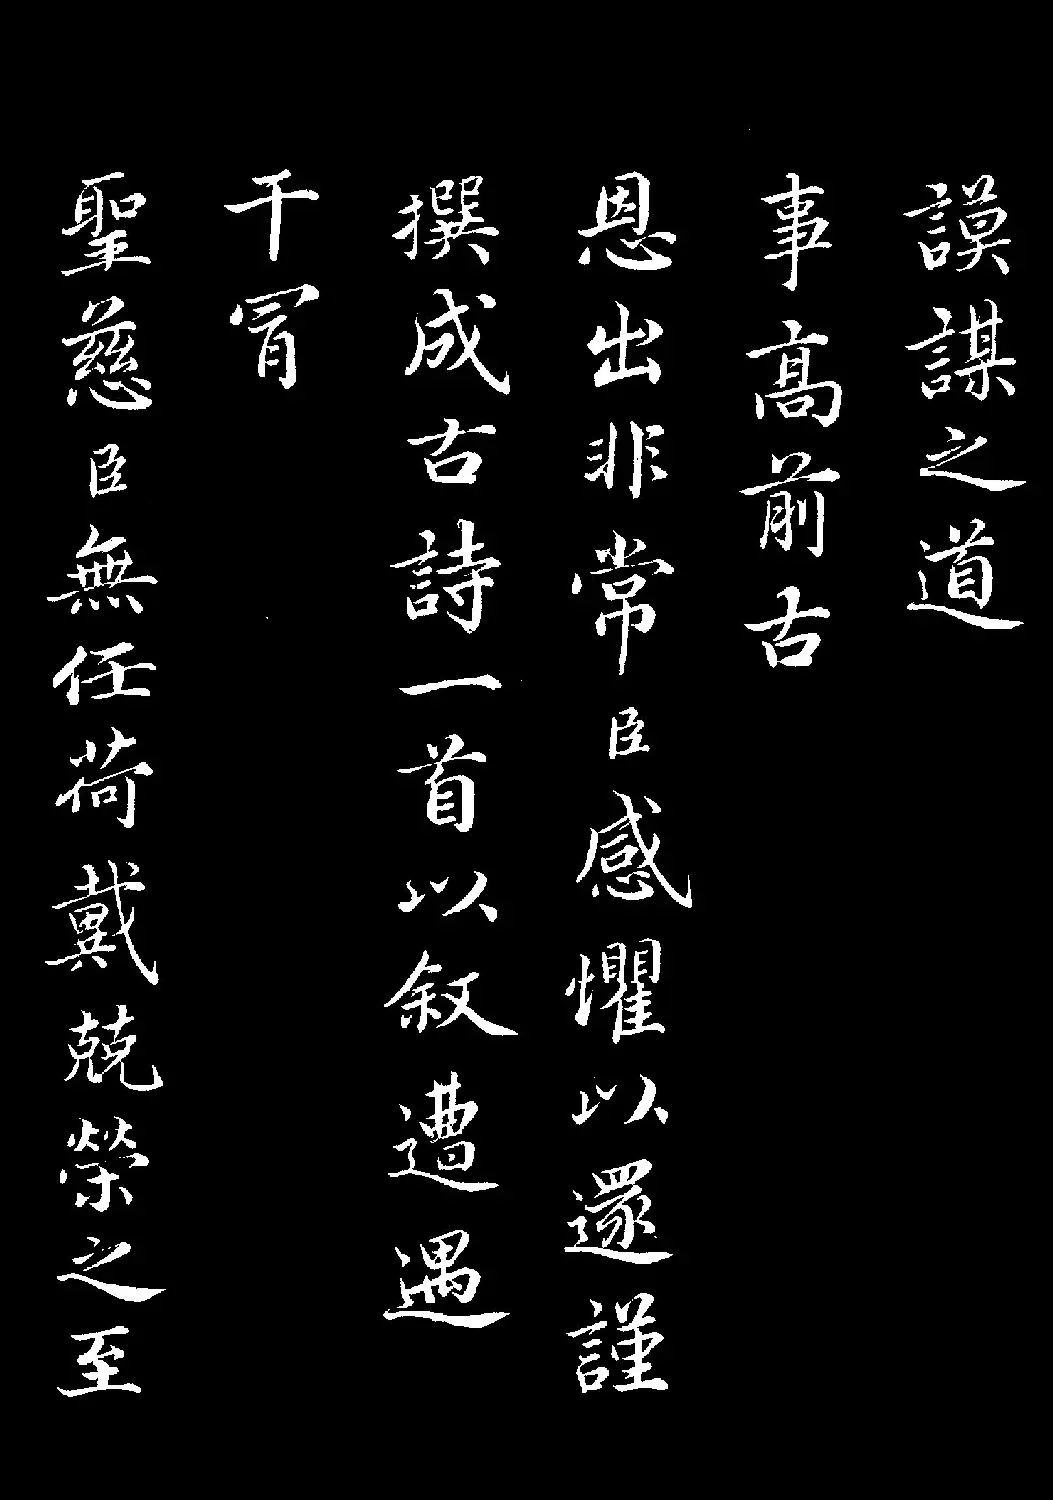 謨謀之道
事高前古
恩出非常臣感懼以還謹
撰成古詩一首以叙遭遇
干冒
聖慈臣無任荷戴兢榮之至